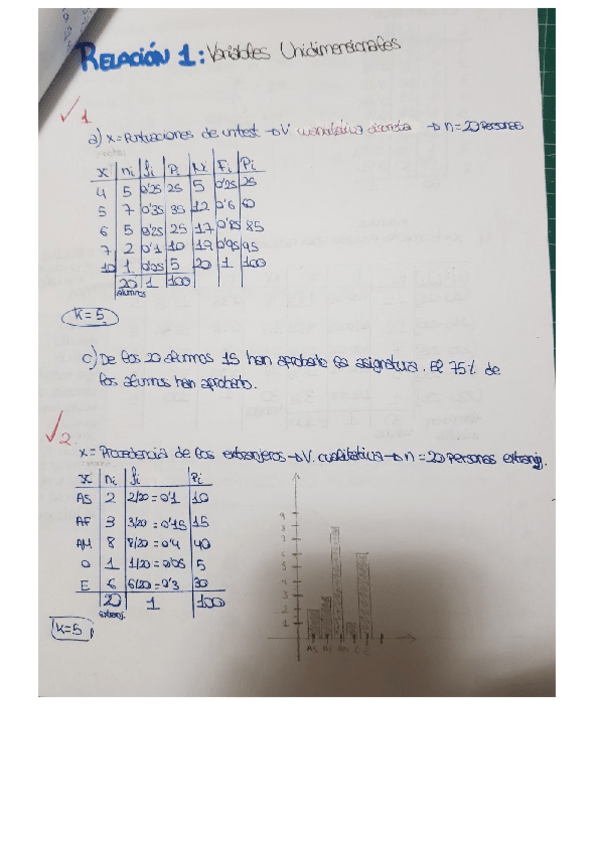 RELACIÓN 1: Variables Unidimensionales
1
a) X = Puntuaciones de un test → V cuantitativa discreta → n = 20 Personas
X ni fi Pi Ni Fi Pi
4 5 0'25 25 5 0'25 25
5 7 0'35 35 12 0'6 60
6 5 0'25 25 17 0'85 85
7 2 0'1 10 19 0'95 95
10 1 0'05 5 20 1 100
20 1 100
Alumnos
K=5
c) De los 20 alumnos 15 han aprobado la asignatura. El 75% de
los alumnos han aprobado.
2
X = Procedencia de los extranjeros → V. cualitativa → n = 20 Personas extranj.
X ni fi Pi
AS 2 2/20 = 0'1 10
AF 3 3/20 = 0'15 15
AM 8 8/20 = 0'4 40
O 1 1/20 = 0'05 5
E 6 6/20 = 0'3 30
20 1 100
K=5
9
8
7
6
5
4
3
2
1
AS